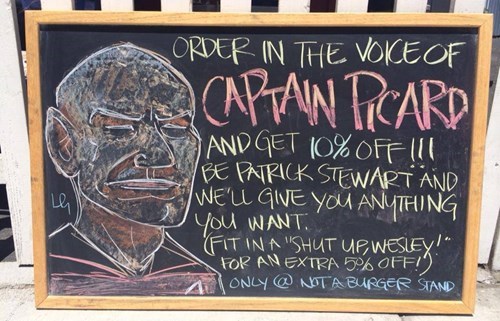 ORDER IN THE VOICE OF
CAPTAIN PICARD
AND GET 10% OFF!!!
BE PATRICK STEWART AND
WE'LL GIVE YOU ANYTHING
YOU WANT.
(FIT IN A "SHUT UP, WESLEY!"
FOR AN EXTRA 5% OFF!)
ONLY @ NOT A BURGER STAND